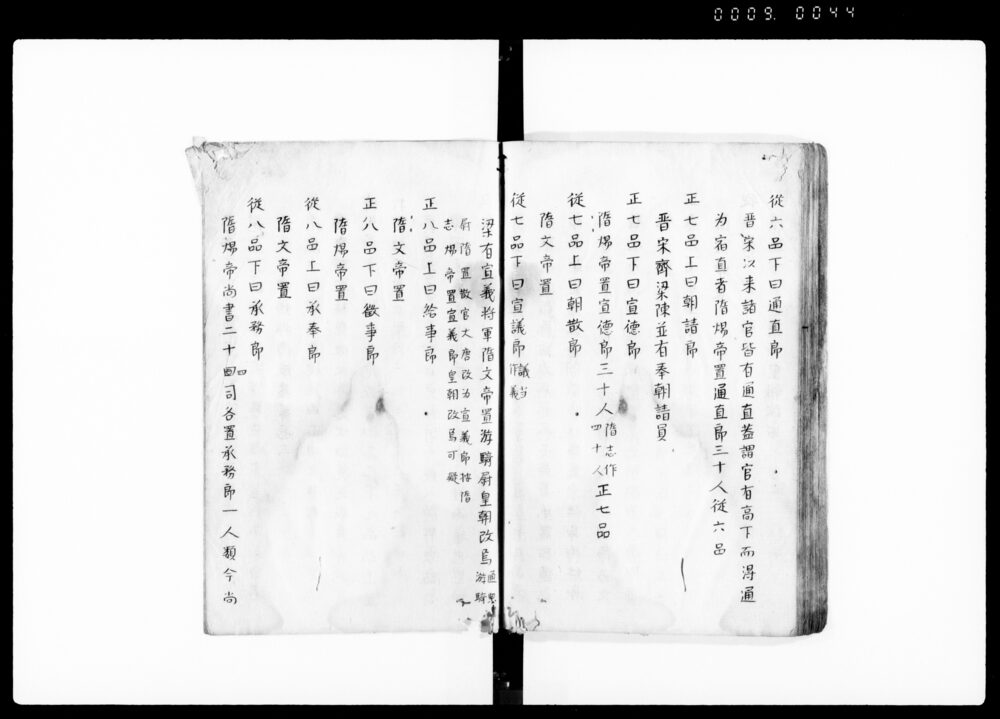 0009. 0044
從六品下曰通直郎
晋宋以来諸官皆有通直蓋謂官有高下而得通
为宿直者隋煬帝置通直郎三十人從六品
正七品上曰朝請郎
晋宋齊梁陳並有奉朝請員
正七品下曰宣德郎
隋煬帝置宣德郎三十人隋志作四十人正七品
從七品上曰朝散郎
隋文帝置
從七品下曰宣議郎議当作義
梁有宣義将軍隋文帝置游騎尉皇朝改爲通典游騎
尉隋置散官大唐改为宣義郎按隋
志煬帝置宣義郎皇朝改爲可疑
正八品上曰給事郎
隋文帝置
正八品下曰徵事郎
隋煬帝置
從八品上曰承奉郎
隋文帝置
從八品下曰承務郎
隋煬帝尚書二十四司各置承務郎一人類今尚